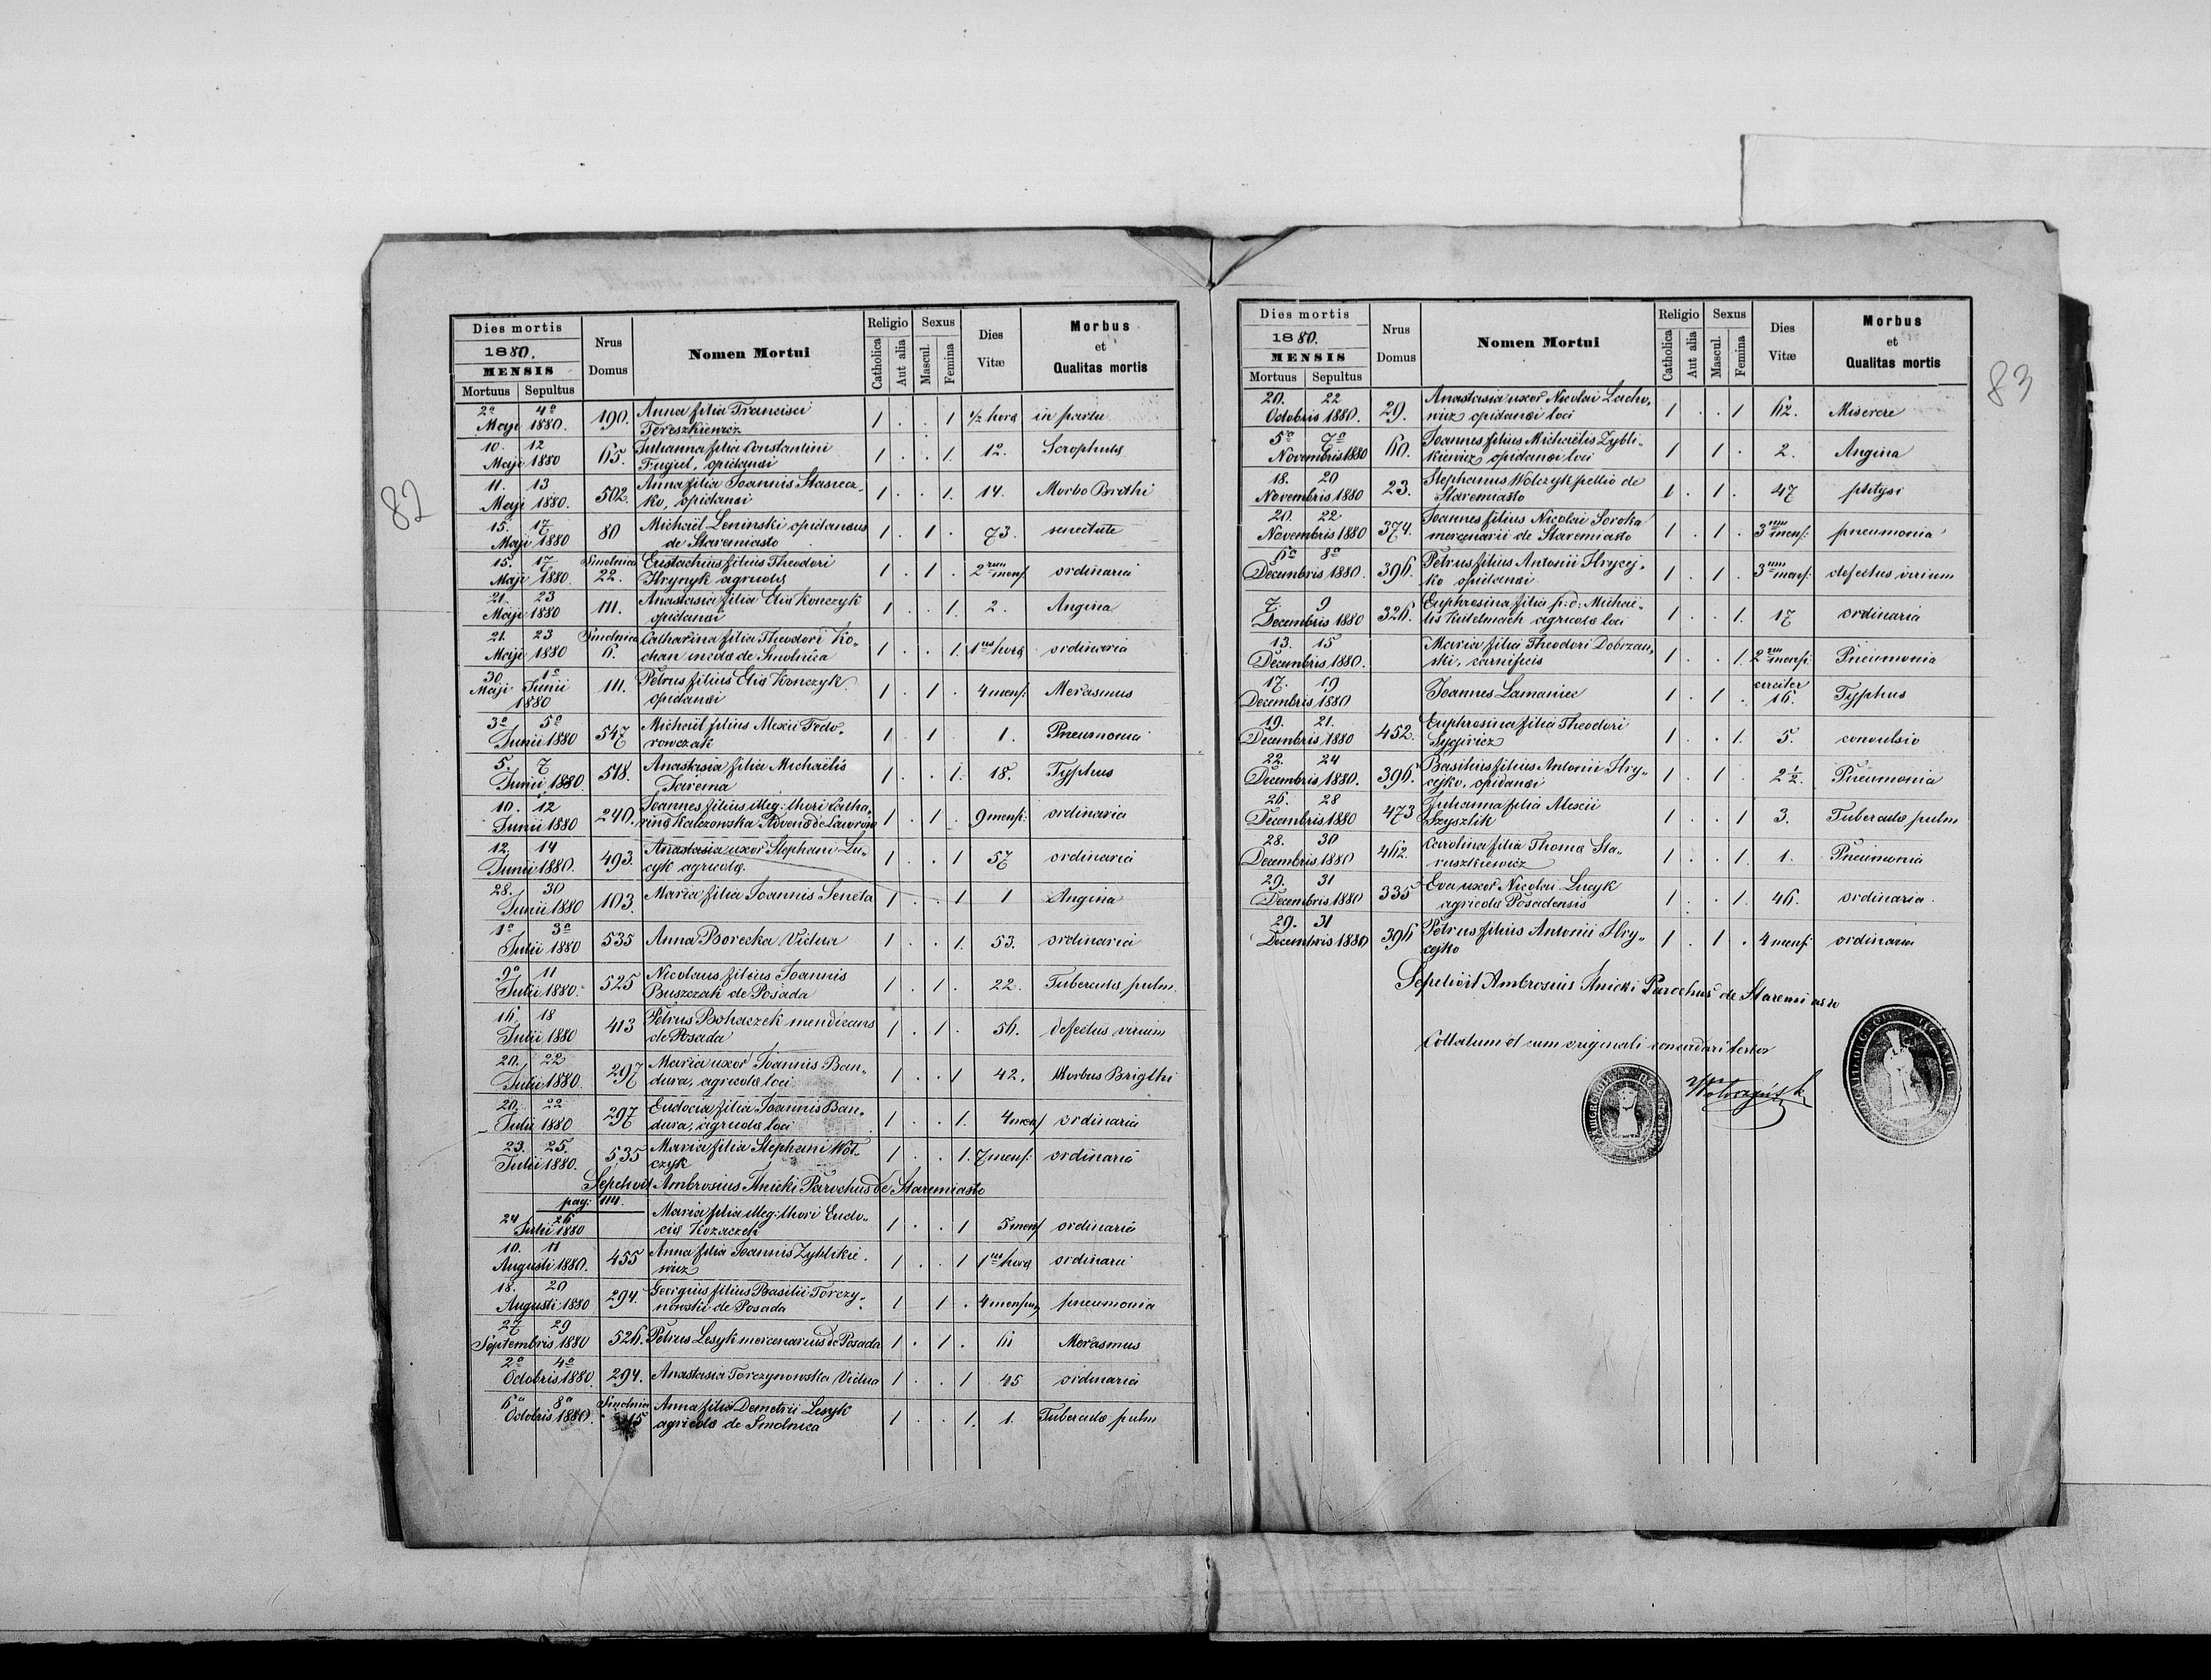 82
Dies mortis
1880.
MENSIS
Mortuus Sepultus
Nrus
Domus
Nomen Mortui
Religio
Catholica
Aut alia
Sexus
Mascul.
Femina
Dies
Vitæ
Morbus
et
Qualitas mortis
2ª 4ª 190. Anna filia Francisci 1 . . 1 1/2 hora in partu
Maji 1880. Tereszkiewicz
10. 12 65. Julianna filia Constantini 1 . . 1. 12. Scrophula
Maji 1880 opidansi
11. 13 502. Anna filia Joannis Stasiecz- 1 . . 1. 14. Morbo Brithi
Maji 1880. ko, opidansi
15. 17 80 Michaël Leninski opidansus 1 . 1 . 73. senectute
Maji 1880 de Staremiasto
15. 17 Smolnica Eustachius filius Theodori 1 . 1 . 2rum mens: ordinaria
Maji 1880. 22. Hrynyk agricola
21. 23 111. Anastasia filia Elia Konczyk 1 . . 1. 2. Angina
Maji 1880 opidansi
21. 23 Smolnica Catharina filia Theodori Ko- 1 . . 1. 1us hora ordinaria
Maji 1880 6. chan incola de Smolnica
30. 1ª 111. Petrus filius Elia Konczyk 1 . 1 . 4 mens: Merasmus
Maji Junii opidansi
1880
3ª 5ª 547 Michaël filius Alexii Fedo- 1 . 1 1. Pneumonia
Junii 1880 rowczak
5. 7 518. Anastasia filia Michaëlis 1 . . 1. 18. Typhus
Junii 1880. Jarema
10. 12 240. Joannes filius illeg: thori Catha- 1 . 1 . 9 mens: ordinaria
Junii 1880 rina Kalczowska
12. 14 493. Anastasia uxor Stephani Lu- 1 . . 1 57 ordinaria
Junii 1880. cyk agricola.
28. 30 103. Maria filia Joannis Seneta 1 . . 1 1 Angina
Junii 1880
1ª 3ª 535 Anna Borecka Vidua 1 . . 1. 53. ordinaria
Julii 1880
9ª 11 525 Nicolaus filius Joannis 1 . 1 . 22. Tubercula pulm.
Julii 1880. Buszczak de Posada
16. 18 413 Petrus Bohaczek mendicans 1 . 1 . 56. defectus virium
Julii 1880 de Posada
20. 22 297 Maria uxor Joannis Ban- 1 . . 1 42. Morbus Brigthi
Julii 1880. dura, agricola loci
20. 22 297 Eudocia filia Joannis Ban- 1 . . 1. 4 mens ordinaria
Julii 1880 dura, agricola loci
23. 25. 535 Maria filia Stephani Wol- 1 . . 1. 7 mens: ordinaria
Julii 1880. czyk
Sepelivit Ambrosius Ilnicki Parochus de Staremiasto
pag: 114.
24 26 Maria filia illeg: thori Eudo- 1 . . 1 5 mens ordinaria
Julii 1880 cia Kozaczek
10. 11 455 Anna filia Joannis Zyblikie- 1 . . 1 1us hora ordinaria
Augusti 1880. wicz
18. 20 294. Georgius filius Basilii Torczy- 1 1 . 4 mensum pneumonia
Augusti 1880 nowski de Posada
27 29 526. Petrus Lesyk mercenarius de Posada 1 . 1 . 61 Merasmus
Septembris 1880
2ª 4ª 294. Anastasia Torczynowska Vidua 1 . . 1 45 ordinaria
Octobris 1880
6ª 8ª Smolnica Anna filia Demetrii Lesyk 1 . . 1. 1. Tubercula pulm
Octobris 1880. 15 agricola de Smolnica
83
Dies mortis
1880.
MENSIS
Mortuus Sepultus
Nrus
Domus
Nomen Mortui
Religio
Catholica
Aut alia
Sexus
Mascul.
Femina
Dies
Vitæ
Morbus
et
Qualitas mortis
20. 22 29. Anastasia uxor Nicolai Lacho- 1 . . 1 62. Miserere
Octobris 1880. wicz opidansi loci
5ª 7ª 60. Joannes filius Michaëlis Zybli- 1 1 . 2. Angina
Novembris 1880 kiewicz opidansi loci
18. 20 23. Stephanus Wolczyk pellio de 1 . 1 . 47 phtysi
Novembris 1880 Staremiasto
20. 22 374. Joannes filius Nicolai Soroka 1 . 1 . 3um mens: pneumonia
Novembris 1880 mercenarii de Staremiasto
6ª 8ª 396. Petrus filius Antonii Hrycej- 1 . 1 . 3um mens: defectus virium
Decembris 1880. ko opidansi
7. 9 326. Euphrosina filia p: d: Michaë- 1 . . 1. 17 ordinaria
Decembris 1880 lis agricola loci
13. 15 Maria filia Theodori Dobrzan- 1 . . 1. 2um mens: Pneumonia
Decembris 1880. ski, carnificis
17. 19 Joannes Lamaniec 1 . 1 . circiter 16. Typhus
Decembris 1880
19. 21. 452. Euphrosina filia Theodori 1 . . 1. 5. convulsio
Decembris 1880
22. 24 396. Basilius filius Antonii Hry- 1 . 1 . 2 1/2. Pneumonia
Decembris 1880. cejko, opidansi
26. 28 473 Julianna filia Alexii 1 . . 1 3. Tubercula pulm
Decembris 1880 Szyszlik
28. 30 462. Carolina filia Thoma Sta- 1 . . 1. 1. Pneumonia
Decembris 1880 ruszkiewicz
29. 31 335 Eva uxor Nicolai Lucyk 1 . . 1. 46. ordinaria.
Decembris 1880 agricola Posadensis
29. 31 396 Petrus filius Antonii Hry- 1 . 1 . 4 mens: ordinaria
Decembris 1880 cejko
Sepelivit Ambrosius Ilnicki Parochus de Staremiasto
Collatum et cum originali concordari testor